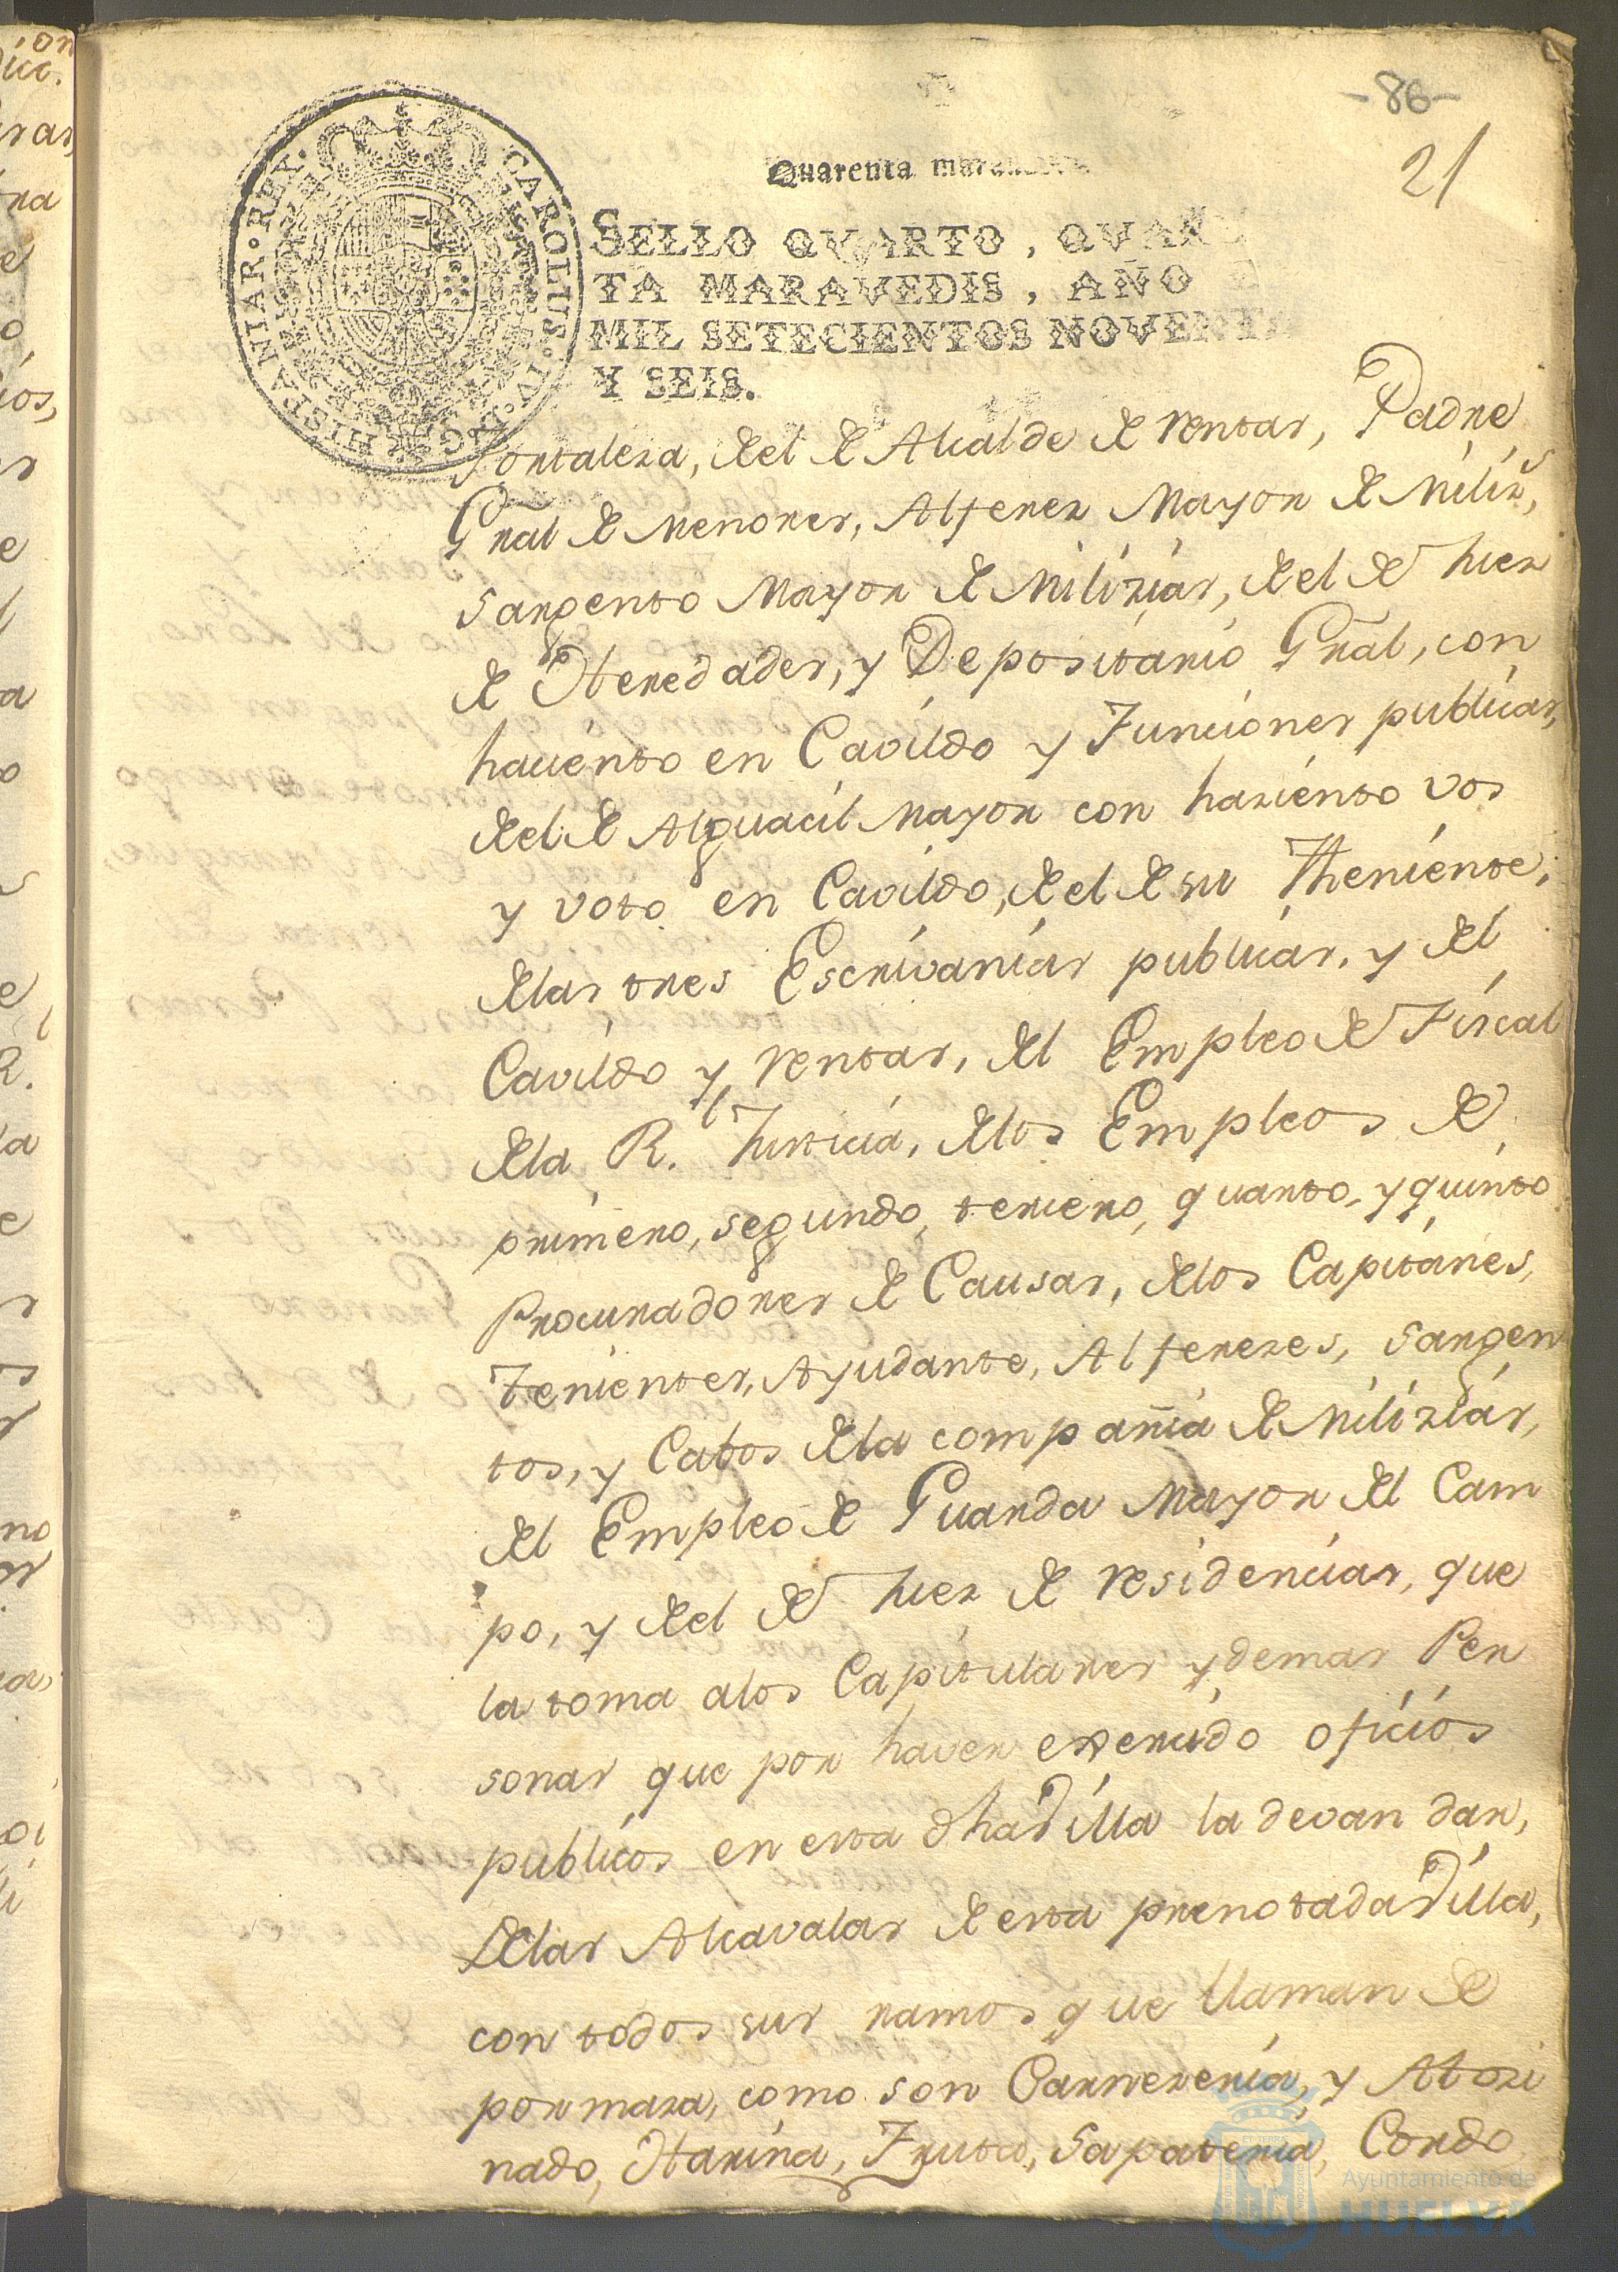 -86-
21
Quarenta maravedis
CAROLUS·IV·D·G·HISPANIAR·REX·
SELLO QVARTO, QVAREN
TA MARAVEDIS, AÑO DE
MIL SETECIENTOS NOVENTA
Y SEIS.
Fortaleza, del de Alcalde de rentas, Padre
Gral de menores, Alferez Mayor de Miliz.s,
Sargento Mayor de Milizias, del de Juez
de Heredades, y Depositario Gral, con
haciento en Cavildo y Funciones publicas,
del de Alguacil Mayor con haziento vos
y voto en Cavildo, del de su Theniente,
delas tres Escrivanias publicas, y del
Cavildo y rentas, del Empleo de Fiscal
dela R.l Justicia, delos Empleos de
primero, segundo, tercero, quarto, y quinto
Procuradores de Causas, delos Capitanes,
Tenientes, Ayudante, Alferezes, Sargen
tos, y Cabos dela compañia de Milizias,
del Empleo de Guarda Mayor del Cam
po, y del de Juez de residencias, que
la toma alos Capitulares y demas Per
sonas que por haver exercido oficios
publicos en esta dha Villa la devan dar,
Delas Alcavalas de esta prenotada Villa,
con todos sus ramos que llaman de
por maza, como son Carnezeria, y Atozi
nado, Harina, Fruta, Sapateria, Cordo
Ayuntamiento de
HUELVA